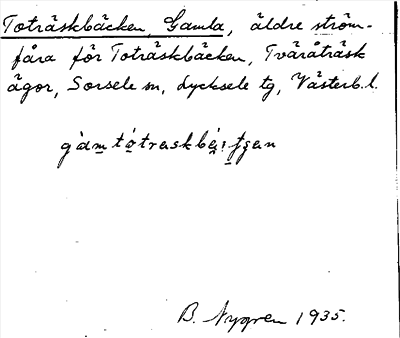 Toträskbäcken, Gamla, äldre ström-
fåra för Toträskbäcken, Tväråträsk
ägor, Sorsele sn, Lycksele tg, Västerb. l.
B. Nygren 1935.